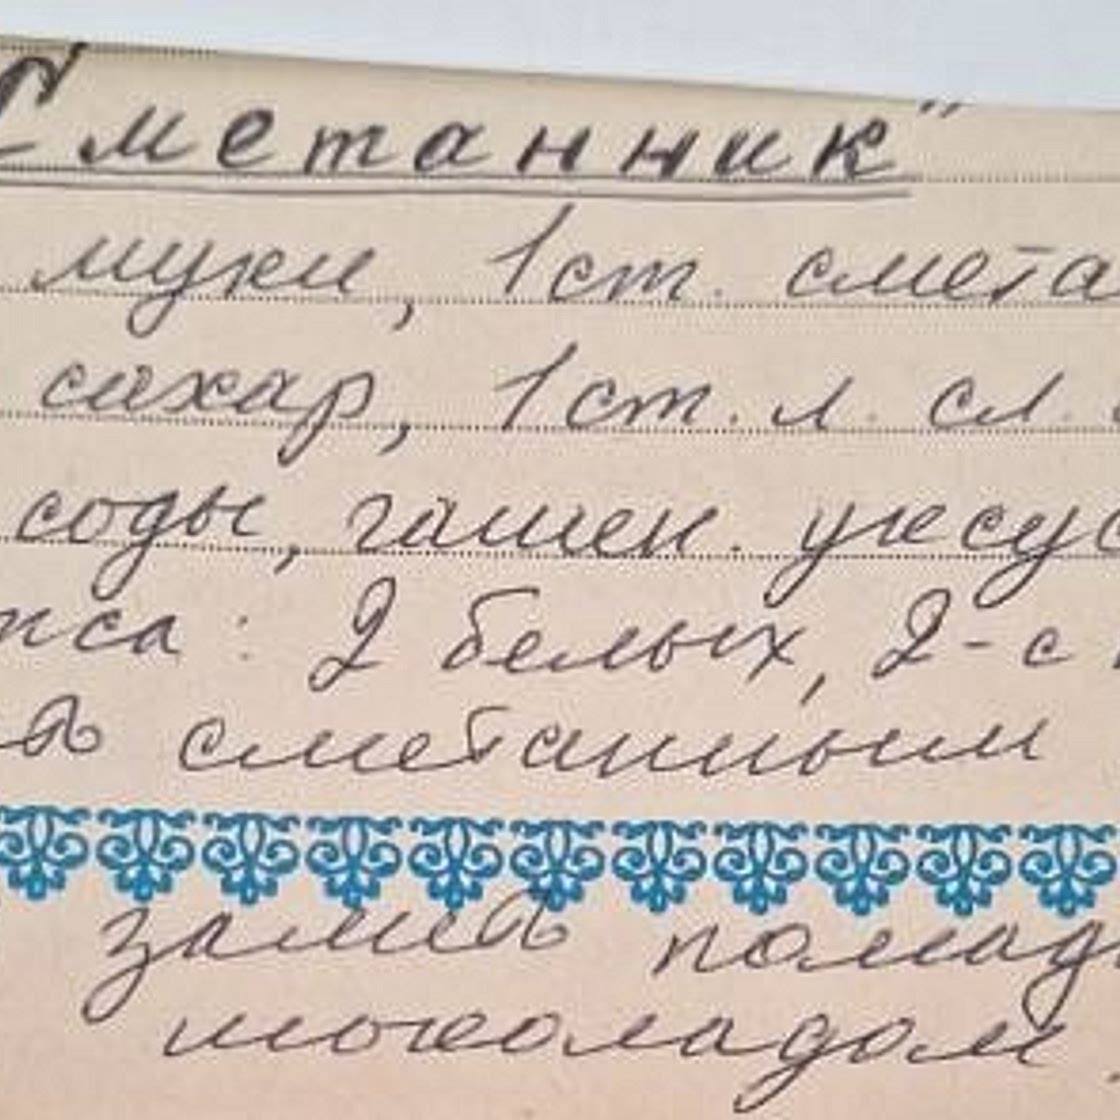 Сметанник"
муки, 1ст. смета
сахар, 1ст. л. сл.
соды, гашен. уксус
: 2 белых, 2-с
сметанным
помад
шоколадом.